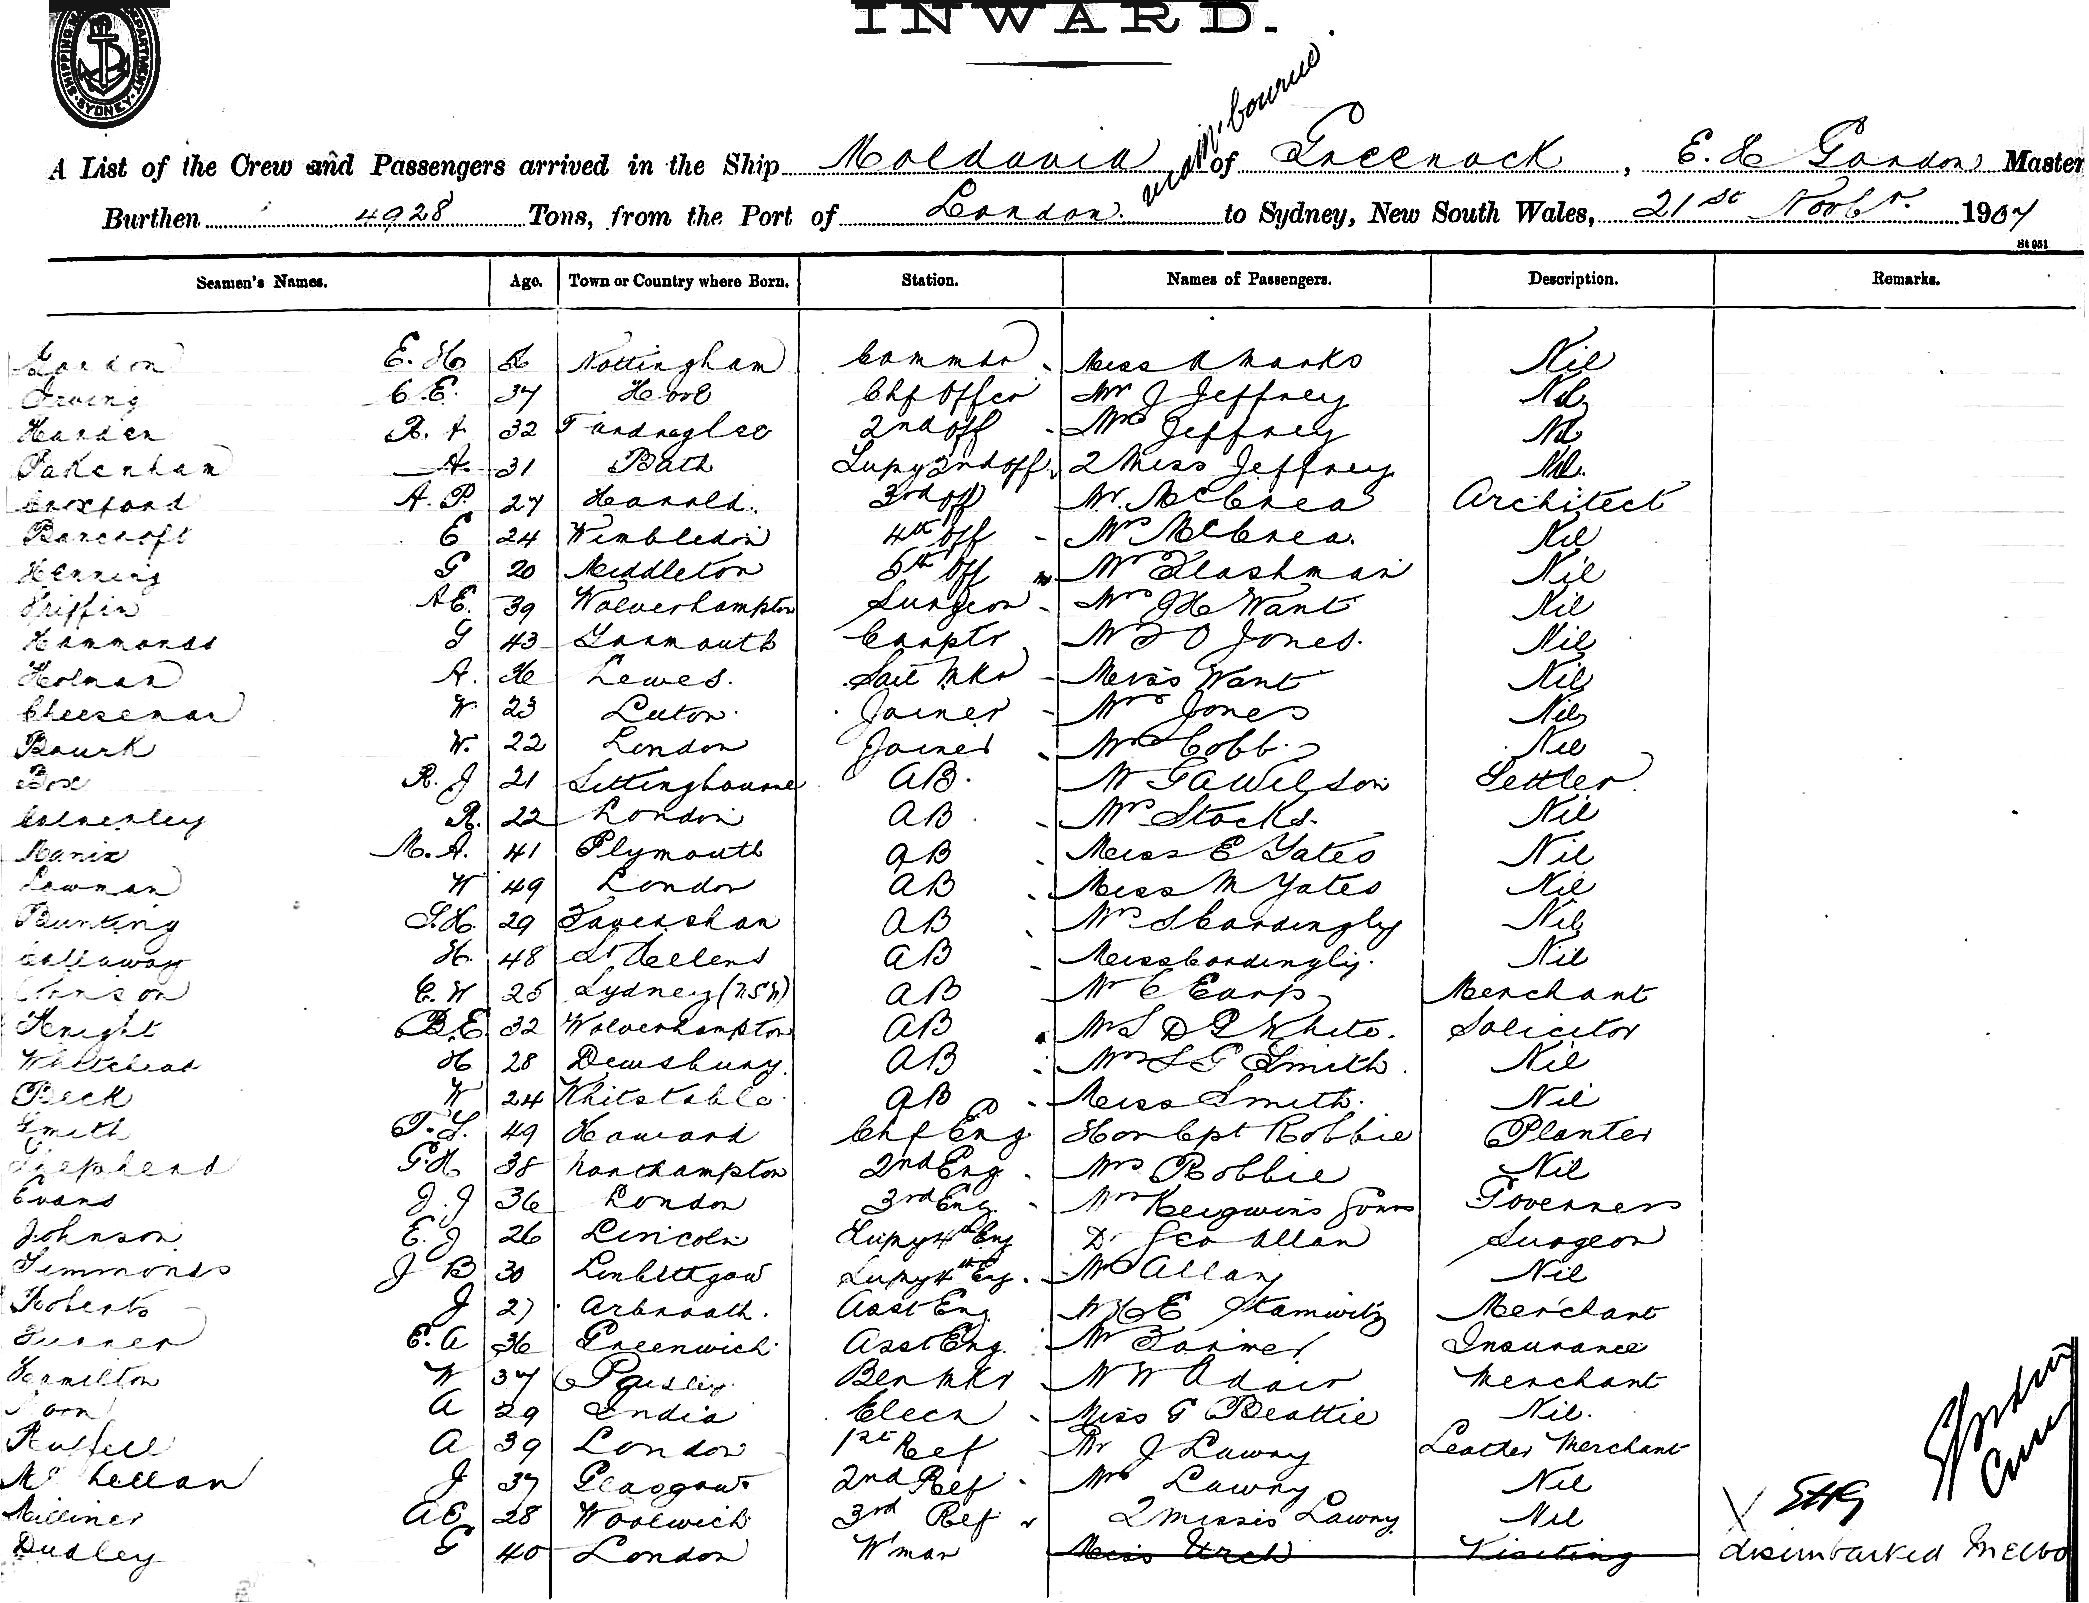 SHIPPING DEPARTMENT. SYDNEY.
INWARD.
A List of the Crew and Passengers arrived in the Ship Moldavia of Greenock, E. H Gordon Master
Burthen 4928 Tons, from the Port of London via Melbourne to Sydney, New South Wales, 21st Novbr. 1907
St 951
Seamen's Names. Age. Town or Country where Born. Station. Names of Passengers. Description. Remarks.
Gordon E. H. Nottingham Commdr Miss A Marks Nil
Irving C. E. 37 Chf Offcr Mr J Jeffrey Nil
Harden R. A 32 2nd Off Mrs Jeffrey Nil
Pakenham A. 31 Bath Supy 2nd Off 2 Miss Jeffrey Nil
Croxford A. P. 27 Harold. 3rd Off Mr. McCrea Architect
Bancroft E 24 Wimbledon 4th Off Mrs McCrea. Nil
Henning G 20 Middleton 5th Off Mr Flashman Nil
Griffin A E. 39 Wolverhampton Surgeon Mrs J H Want Nil
Hammonds G 43 Yarmouth Carptr Jones. Nil
Holman A. 36 Lewes. Sail Mkr Miss Want Nil
Cheeseman W 23 Luton Joiner Mrs Jones Nil
Bourk W. 22 London Joiner Mrs Cobb Nil
Box R. J 21 Sittingbourne AB. Mr G A Wilson Settler
Calverley R. 22 London AB Mrs Stocks. Nil
Manix M. A. 41 Plymouth AB Miss E Yates Nil
Lowman W 49 London AB Miss M Yates Nil
Bunting S. H. 29 Faversham AB Mrs S Cardingly Nil
Callaway H. 48 St Hellens AB Miss Cardingly. Nil
C. W 25 Sydney (NSW) AB Mr C Earp Merchant
Knight B. E. 32 Wolverhampton AB White. Solicitor
Whitehead H 28 Dewsbury. AB Mrs S G Smith Nil
Beck W 24 Whitstable AB Miss Smith. Nil
Smith T. S. 49 Chf Eng Hon Cpt Robbie Planter
Shepherd G. H 38 Northampton 2nd Eng. Mrs Robbie Nil
Evans J. J 36 London 3rd Eng Governess
Johnson E. J 26 Lincoln Supy 4th Eng Dr Geo Allan Surgeon
Simmonds J B 30 Linlithgow Supy 4th Eng. Mrs Allan Nil
Roberts J 27 Arbroath. Asst Eng Mr C E Stamwitz Merchant
Turner E. A 36 Greenwich Asst Eng. Mr Farmer Insurance
Hamilton W 37 Paisley Mr W Adair Merchant
A 29 India Elecn Miss G Beattie Nil.
Russell A 39 London 1st Ref Mr J Lawry Leather Merchant
McLellan J 37 Glasgow 2nd Ref Mrs Lawry Nil
Milliner A E 28 Woolwich 3rd Ref 2 Misses Lawry Nil
Dudley G 40 London Wman Miss Urch Visiting disembarked Melbo
EHG